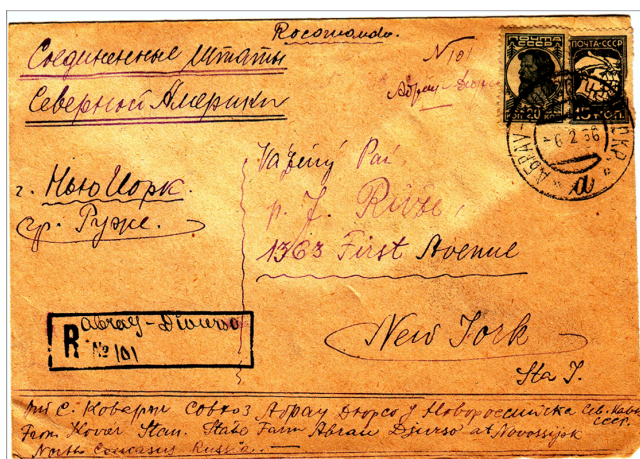 Rocomando.
Соединенные Штаты
Северной Америки
N 101
Абрау-Дюрсо
ПОЧТА
СССР
ПОЧТА·СССР
20 КОП.
15 КОП.
АБРАУ-
-6 2 36
"а"
г. Нью Йорк.
гр. Руже.
Vážený Paí,
p. J. Růže,
1363 First Avenue
New York
Sta J.
R
abray-Diurso
№ 101
С. Коверж Совхоз Абрау Дюрсо у Новороссийска Сев. Кавк.
СССР.
From Kover Stan. State Farm Abrau Djurso at Novossijsk
North Caucasus Russia.